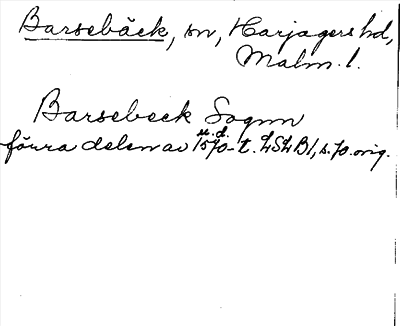 Barsebäck, sn, Harjagers hd,
Malm. l.
Barsebeck Sognn
förra delen av 1570-t. LSLB1, s. 70. orig.
u. d.